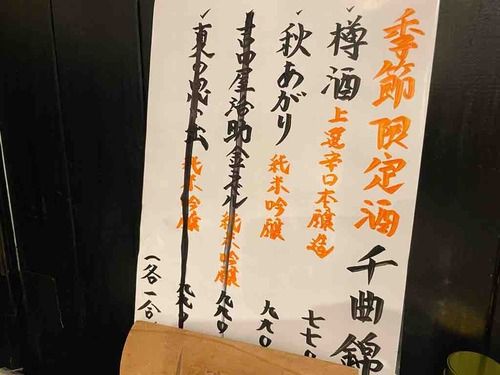 季節限定酒 千曲錦
樽酒 上選辛口本醸造 七七〇
秋あがり 純米吟醸 九九〇
吉田屋治助金ラベル 純米吟醸 九九〇
東の 純米吟醸 九九〇
一各一合